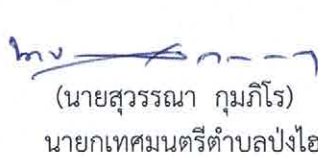 (นายสุวรรณา กุมภิโร)
นายกเทศมนตรีตำบลปงไฮ